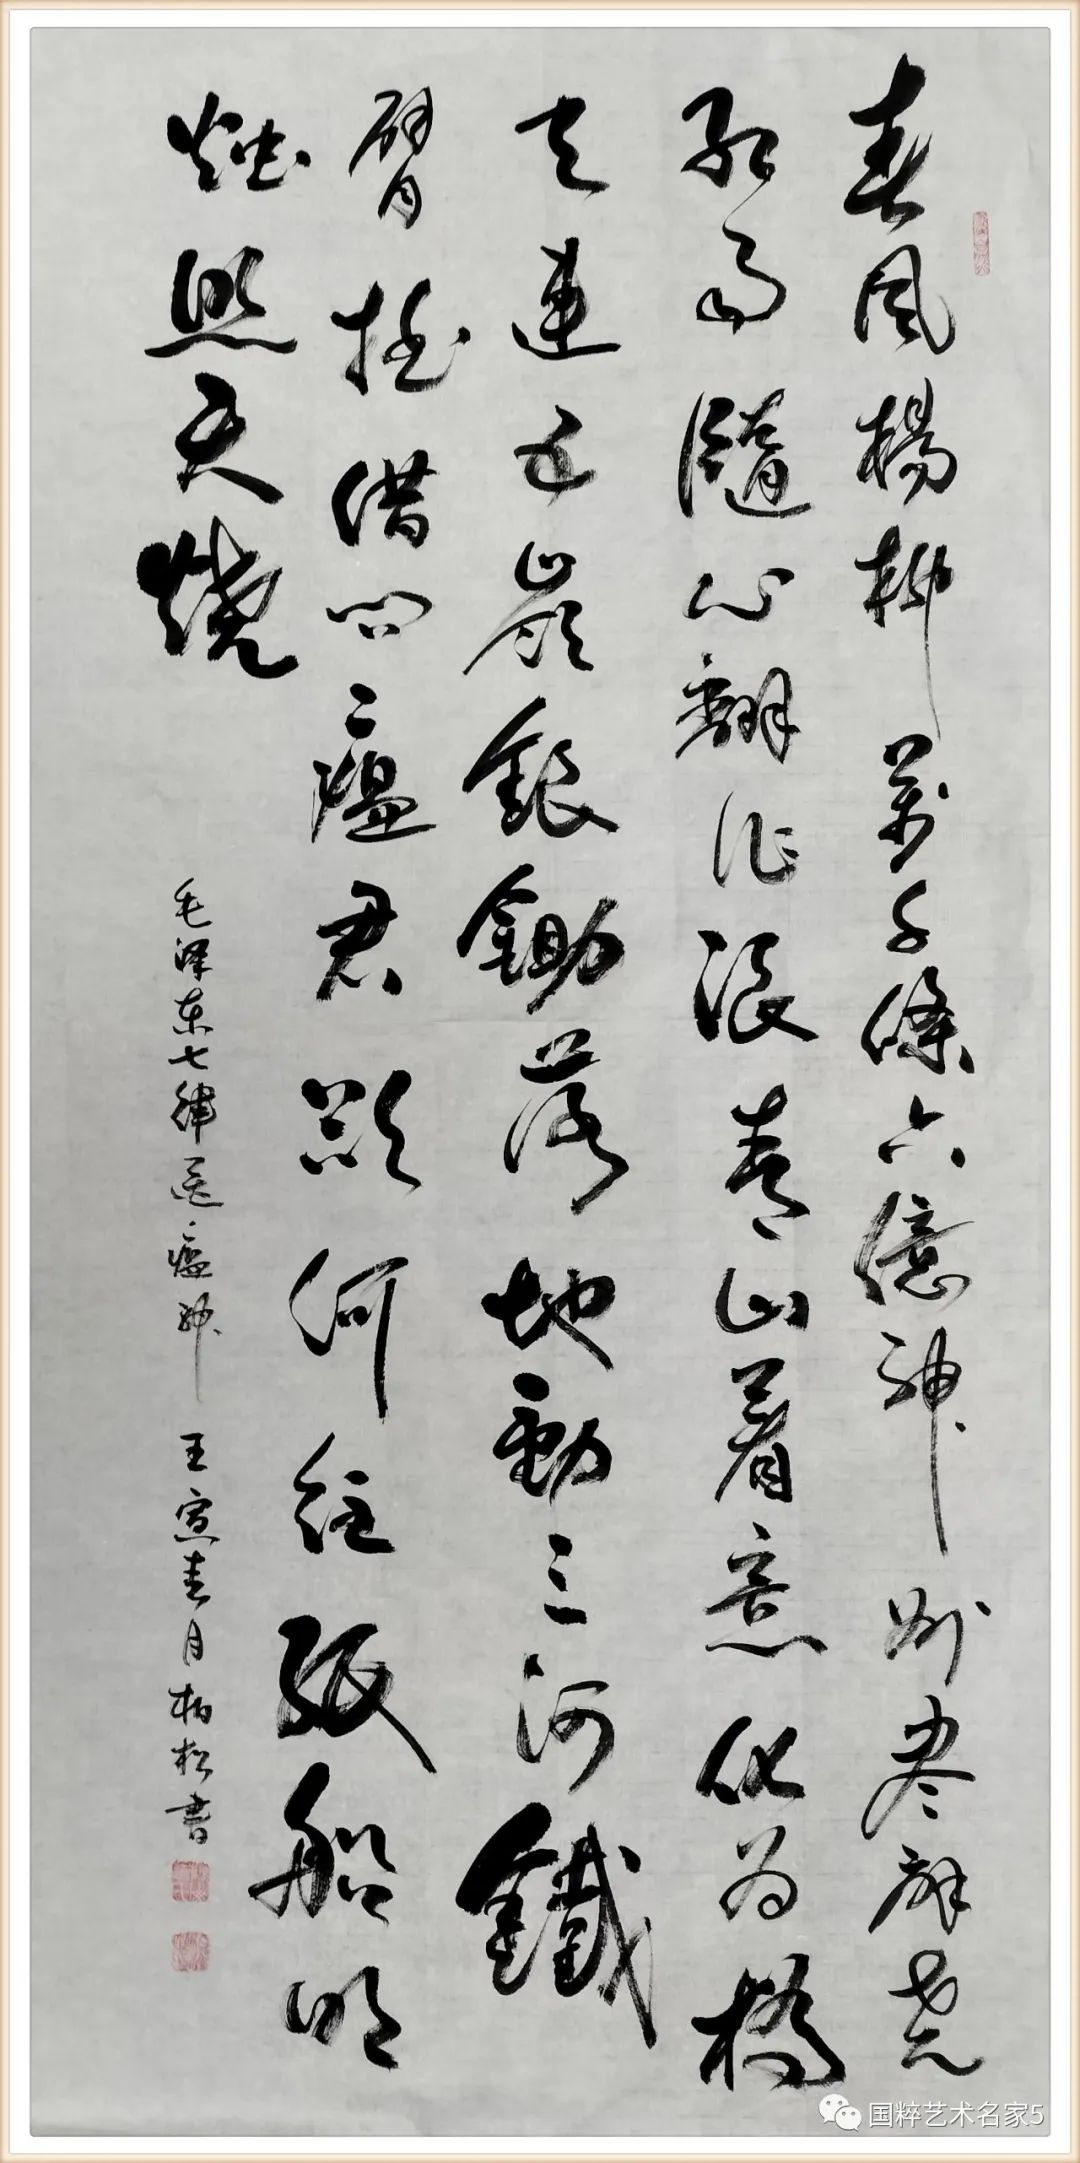 春風楊柳萬千條六億神州尽舜尧
紅雨隨心翻作浪青山着意化為橋
天連五嶺銀鋤落地動三河鐵
臂摇借問瘟君欲何往紙船明
烛照天燒
毛泽东七律送瘟神 壬寅春月柏松書
国粹艺术名家5